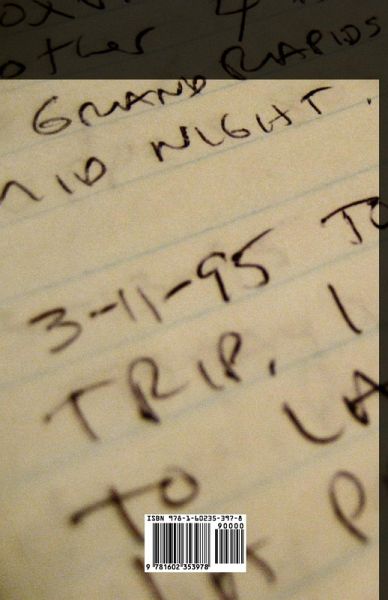 4
other
GRAND RAPIDS
MID NIGHT.
3-11-95 TO
TRIP, I
TO LA
P
ISBN 978-1-60235-397-8
90000
9 781602 353978